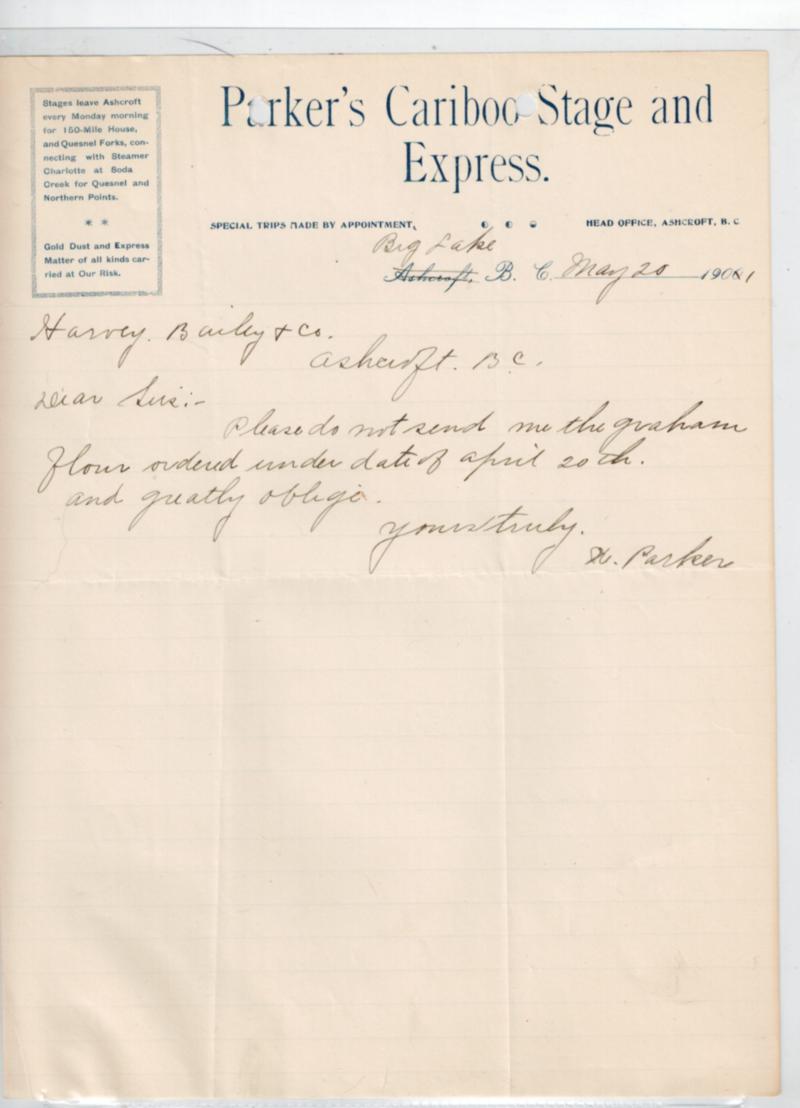 Stages leave Ashcroft
every Monday morning
for 150-Mile House,
and Quesnel Forks, con-
necting with Steamer
Charlotte at Soda
Creek for Quesnel and
Northern Points.
* *
Gold Dust and Express
Matter of all kinds car-
ried at Our Risk.
Parker's Cariboo Stage and
Express.
SPECIAL TRIPS MADE BY APPOINTMENT, HEAD OFFICE, ASHCROFT, B. C
Big Lake
Ashcroft, B. C. May 20 1901
Harvey. Bailey & Co.
Ashcroft. B C.
Dear Sirs:-
Please do not send me the graham
flour ordered under date of april 20th.
and greatly oblige.
yours truly.
H. Parker